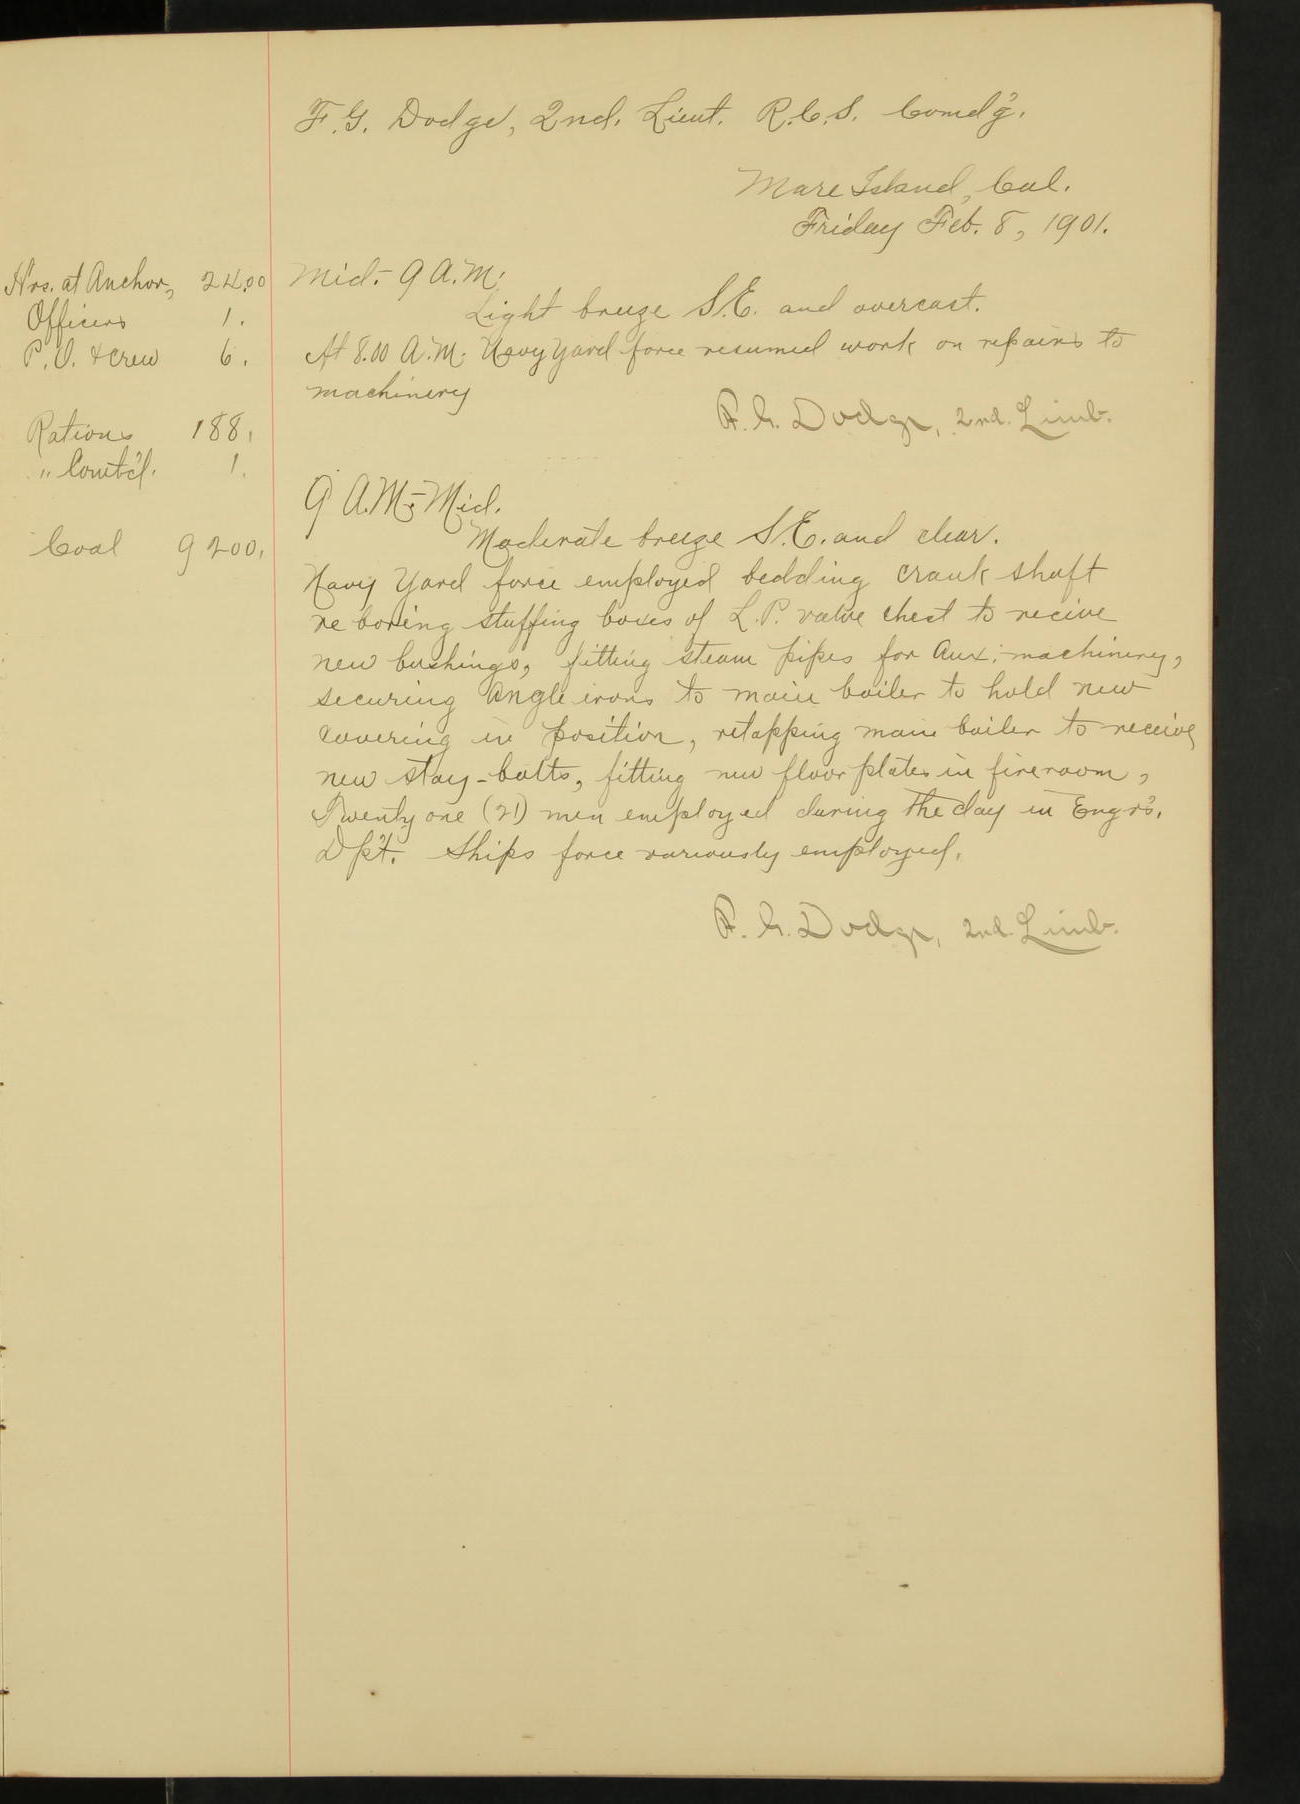 F. G. Dodge, 2nd. Lieut. R.C.S. Comd'g.
Mare Island, Cal.
Friday Feb. 8, 1901.
Hrs. at Anchor, 24.00
Officers 1.
P. O. & crew 6.
Rations 188.
" Comt'd. 1.
Coal 9200.
Mid.- 9 A.M.
Light breeze S.E. and overcast.
At 8.00 A.M. Navy Yard force resumed work on repairs to
machinery
F. G. Dodge, 2nd. Lieut.
9 A.M.- Mid.
Moderate breeze S.E. and clear.
Navy Yard force employed bedding crank shaft
re boring stuffing boxes of L.P. valve chest to recive
new bushings, fitting steam pipes for Aux. machinery,
securing Angle irons to main boiler to hold new
covering in position, retapping main boiler to receive
new stay-bolts, fitting new floor plates in fireroom,
Twenty one (21) men employed during the day in Engr's.
Dp't. Ships force variously employed.
F. G. Dodge, 2nd. Lieut.